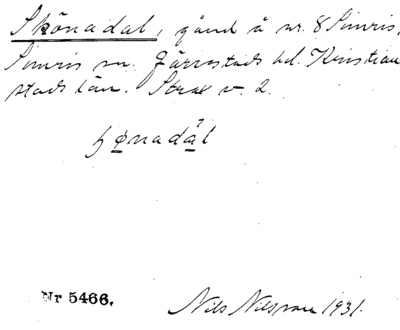 Skönadal, gård å nr. 8 Simris,
Simris sn. Järrestads hd. Kristian
stads län. Strax v. 2.
ɧønadål
Nr 5466. Nils Nilsson 1931.